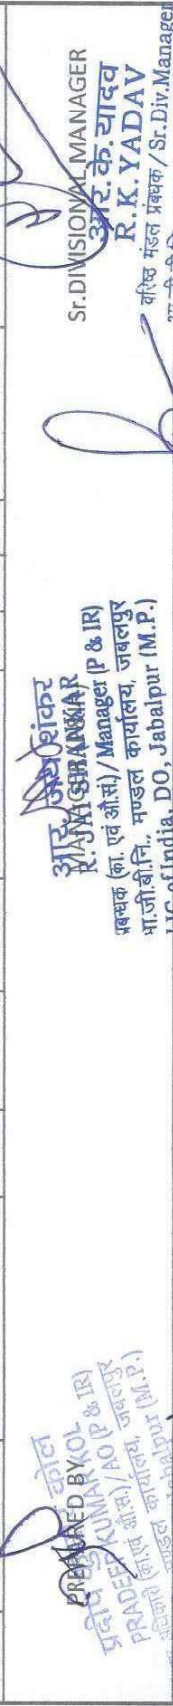 PREPARED BY
प्रदीप कुमार कोल
PRADEEP KUMAR KOL
(का.एवं औ.सं)/ AO (P & IR)
मण्डल कार्यालय, जबलपुर
Jabalpur (M.P.)
MANAGER
आर. जय शंकर
R. JAY SHANKAR
प्रबन्धक (का. एवं औ.सं)/ Manager (P & IR)
भा.जी.बी.नि., मण्डल कार्यालय, जबलपुर
of India, DO, Jabalpur (M.P.)
Sr.DIVISIONAL MANAGER
आर. के. यादव
R. K. YADAV
वरिष्ठ मंडल प्रबंधक / Sr. Div. Manager